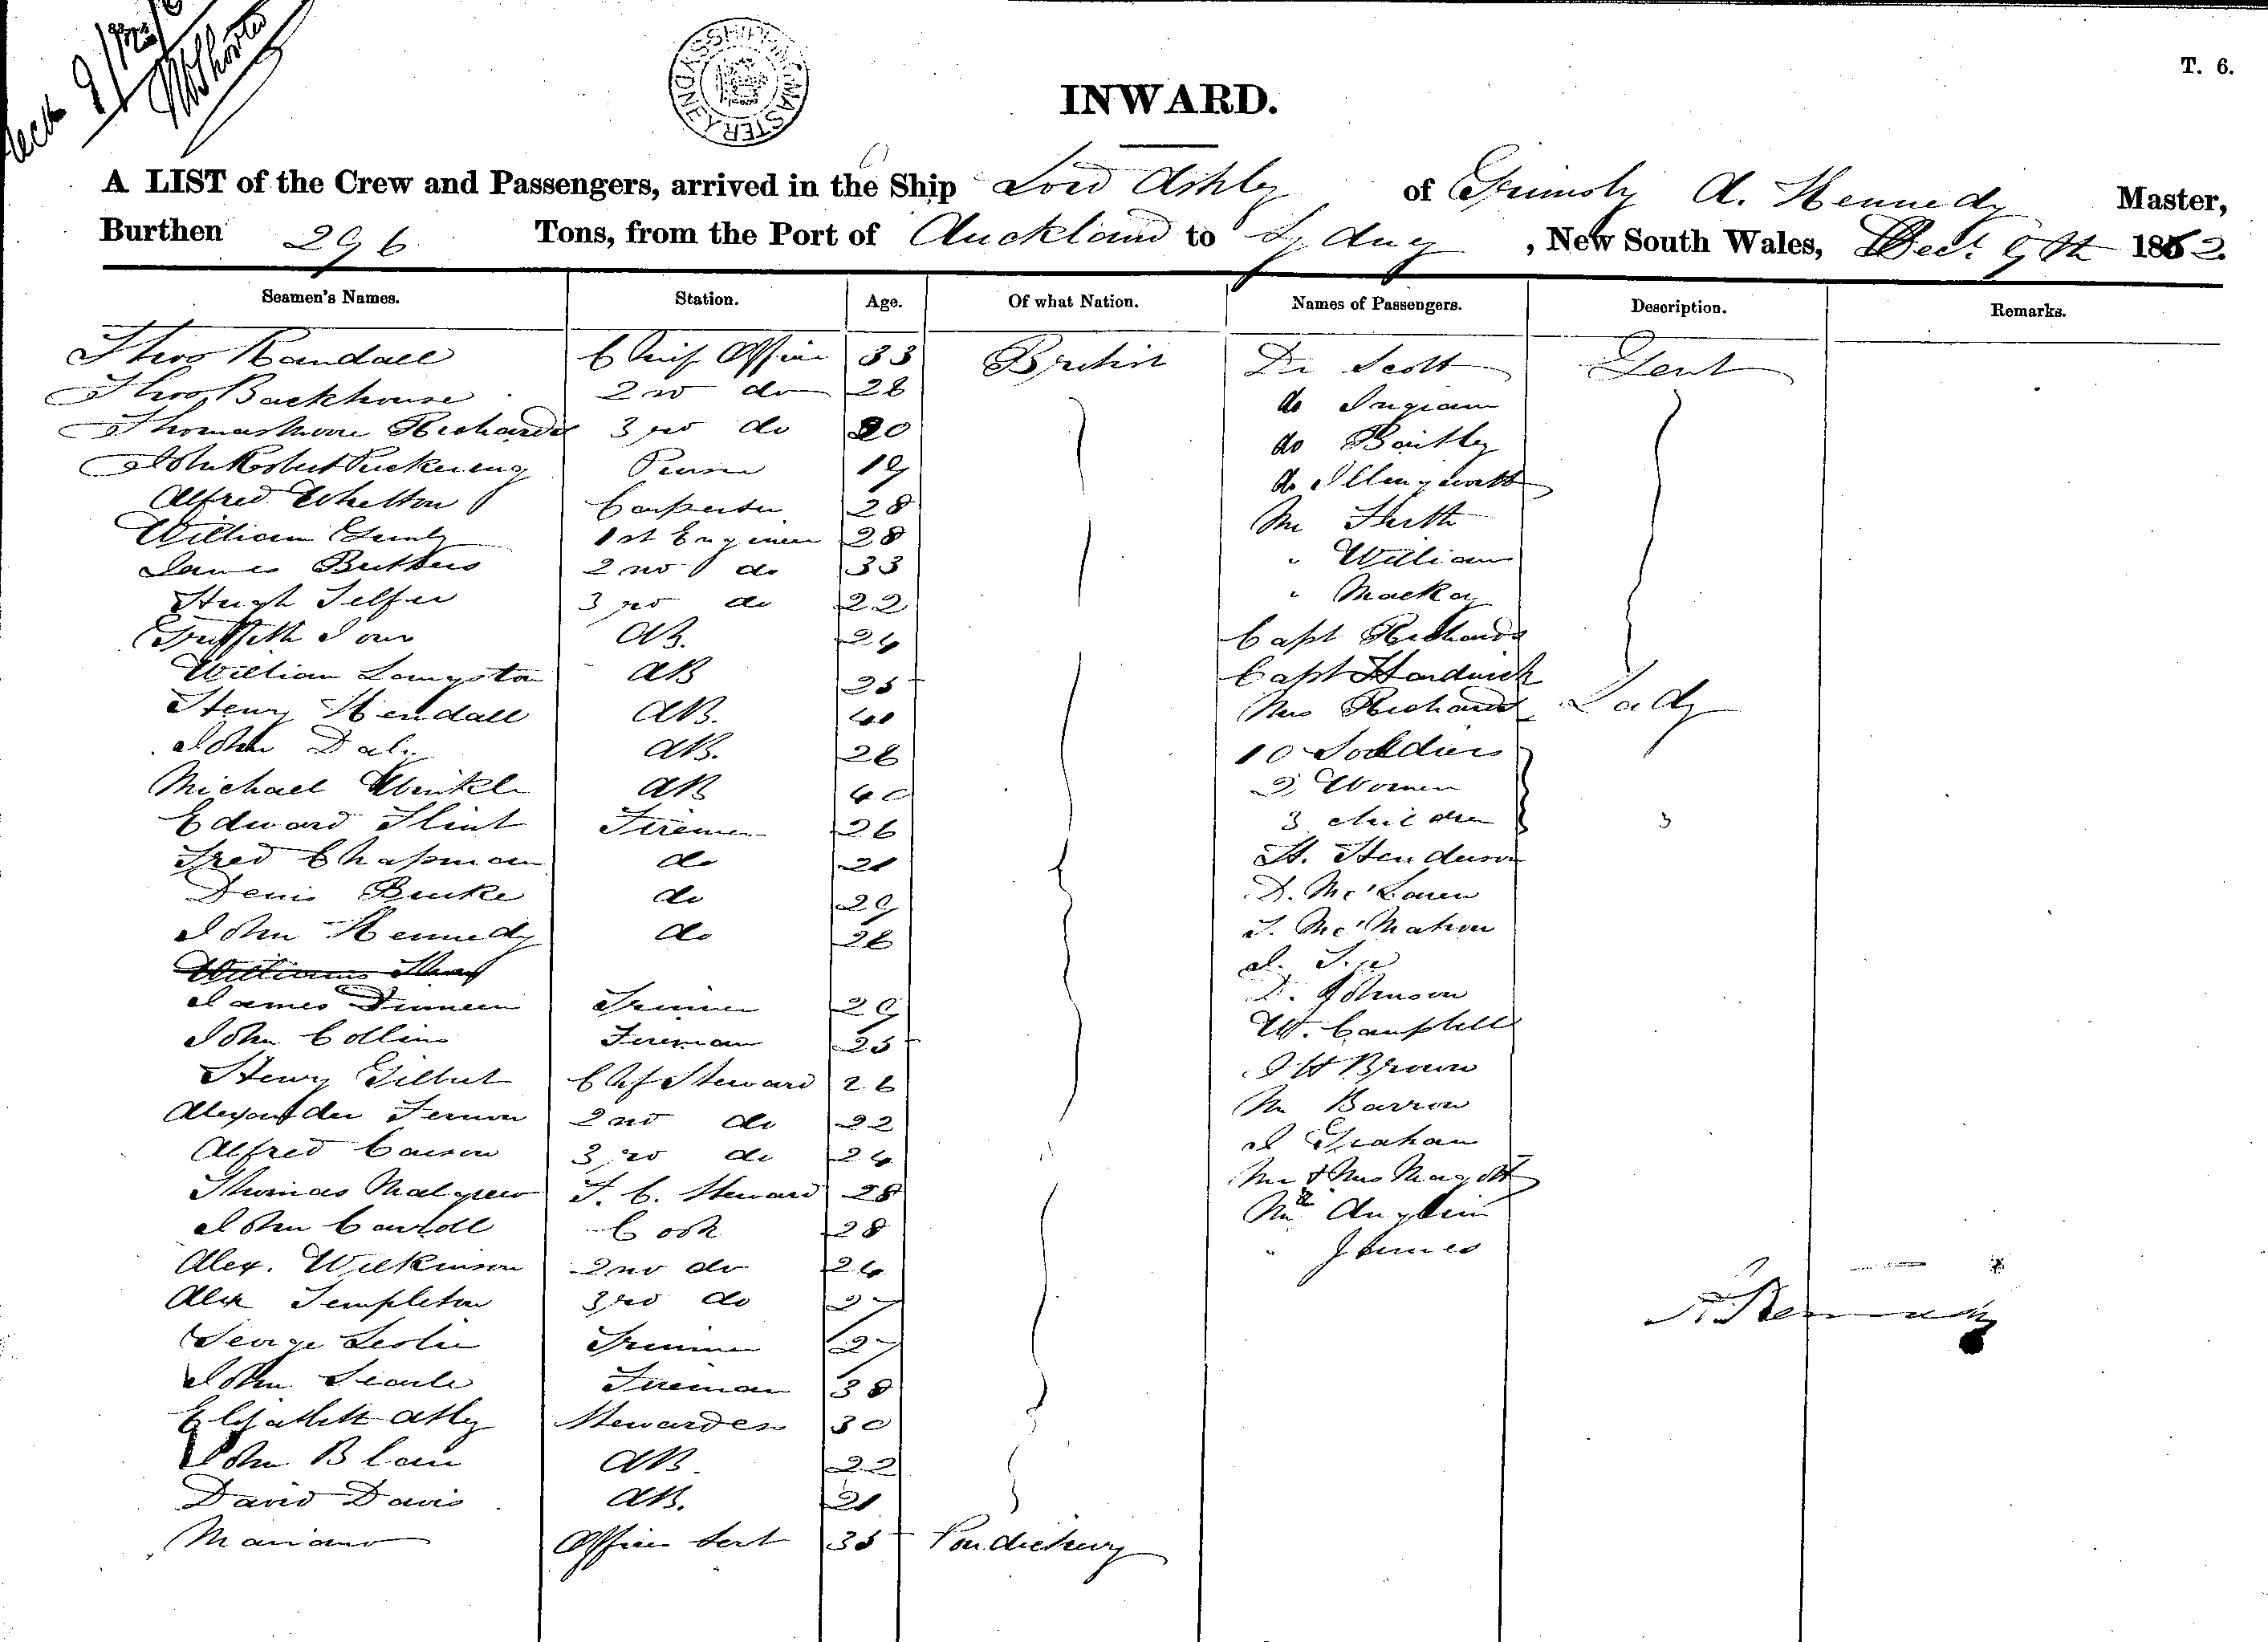 T. 6.
SHIPPING MASTER SYDNEY
INWARD.
A LIST of the Crew and Passengers, arrived in the Ship Lord Ashley of Grimsby A. Kennedy Master,
Burthen 296 Tons, from the Port of Auckland to Sydney, New South Wales, Dec. 9th 1862.
Seamen's Names. Station. Age. Of what Nation. Names of Passengers. Description. Remarks.
Thos Randall Chief Officer 33 British Dr Scott Gent
Thos Backhouse 2nd do 28 do Ingram
Thomas Richards 3rd do 20 do Bailley
John Robert Puckering Purser 19 do Illingworth
Alfred Whelton Carpenter 28 Mr Firth
William 1st Engineer 28 " William
James Buthers 2nd do 33 " Mackay
Hugh Telfer 3rd do 22 Capt Richards
Griffith AB. 24 Capt Hardwick
William Langston AB 25 Mrs Richards Lady
Henry Kendall AB. 40 10 Soldiers
John Daly AB. 26 2 Women
Michael AB 40 3 children
Edward Flint Fireman 26 H. Henderson
Fred Chapman do 21 D. McLaren
Denis Burke do 29 T. McMahon
John Kennedy do 26
James Dinneen Trimmer 29 D. Johnson
John Collins Fireman 25 W. Campbell
Henry Gilbert Chf Steward 26 Brown
Alexander Fernon 2nd do 22 Mr Barron
Alfred Carson 3rd do 24 J Graham
Thomas Malgrew F. C. Steward 28 Mr & Mrs
John Carroll Cook 28
Alex. Wilkinson 2nd do 24 " James
Alex Templeton 3rd do 27 A. Kennedy
George Leslie Trimmer 27
John Searle Fireman 38
Elizabeth Stewardess 30
John Blair AB. 22
David Davis AB. 21
Mariano Officers Sert 35 Pondichery